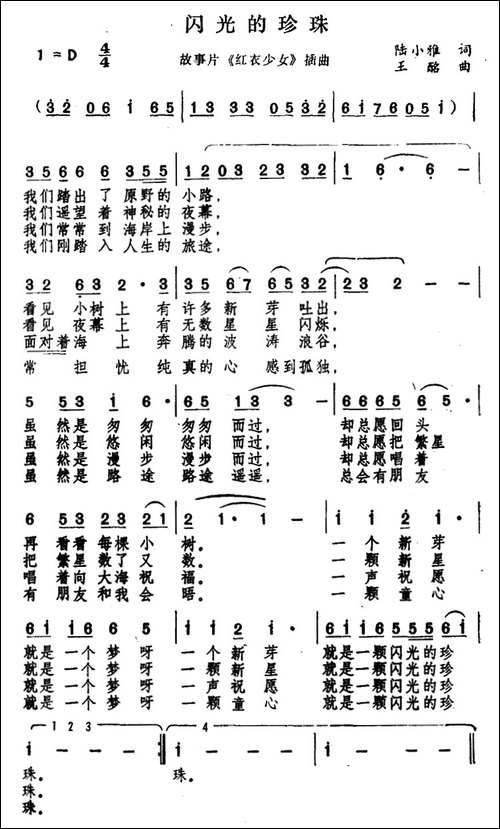 闪光的珍珠
1=D 4/4 故事片《红衣少女》插曲 陆小雅 词
王酩 曲
(32 06 i 65 | 13 03 23 32 | 6i7605i)
3566 6355 | 1203 23 32 | 1 6·6 -
我们踏出了原野的小路,
我们遥望着神秘的夜幕,
我们常常到海岸上漫步,
我们刚踏入人生的旅途,
32 63 2·3 | 35 67 65 32 | 23 2 - -
看见小树上有许多新芽吐出,
看见夜幕上有无数星星闪烁,
面对着海上奔腾的波涛浪谷,
常担忧纯真的心感到孤独,
5 53 i 6· | 65 12 3 3 - | 6665 65·
虽然是匆匆匆匆而过, 却总愿回头
虽然是悠闲悠闲而过, 却总愿把繁星
虽然是漫步漫步而过, 却总愿唱着
虽然是路途路途遥遥, 总会有朋友
6 53 23 21 | 2 i·i - | i i 2 i·
再看看每棵小树。 一个新芽
把繁星数了又数。 一颗新星
唱着向大海祝福。 一声祝愿
有朋友和我会晤。 一颗童心
6i i6 6 5 | i i 2 i· | 6i i6 5555 6i
就是一个梦呀 一个新芽 就是一颗闪光的珍
就是一个梦呀 一颗新星 就是一颗闪光的珍
就是一个梦呀 一声祝愿 就是一颗闪光的珍
就是一个梦呀 一颗童心 就是一颗闪光的珍
1 2 3 4
i - - - :| i - - - ‖
珠。 珠。
珠。
珠。